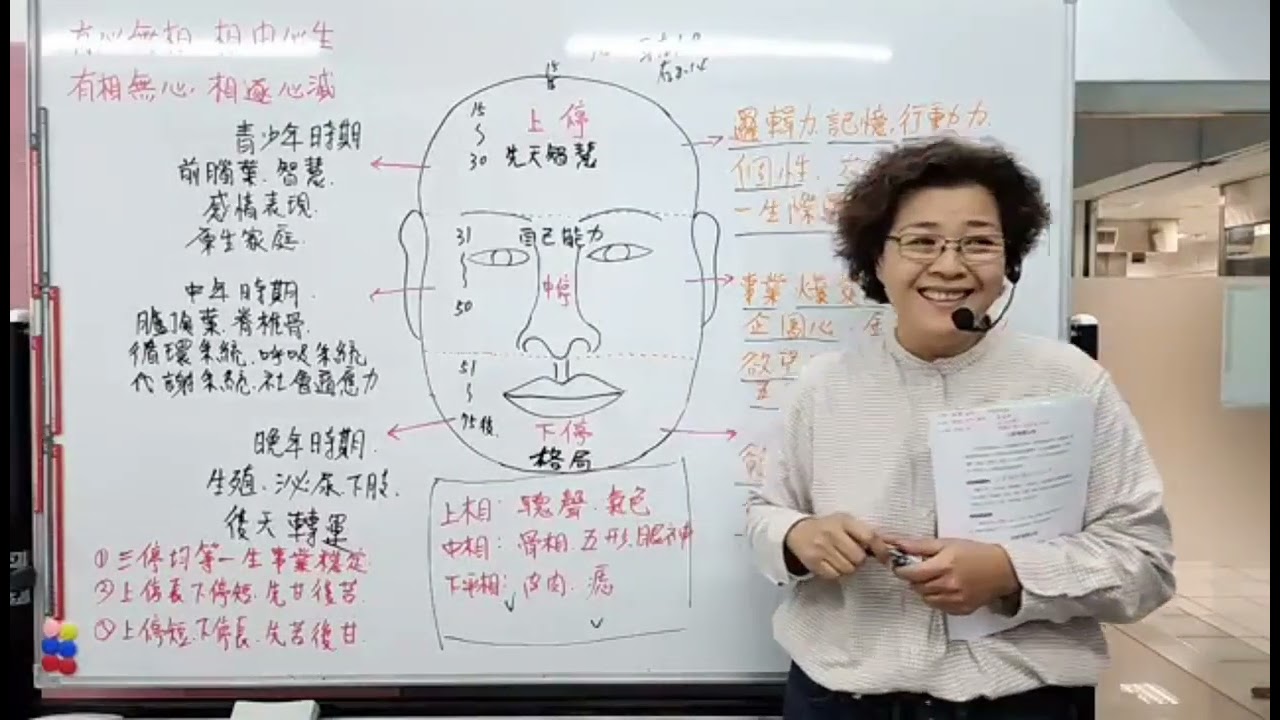 有心無相.相由心生
有相無心.相逐心滅
青少年時期
前腦葉.智慧.
感情表現.
原生家庭.
中年時期.
腦頂葉.脊椎骨.
循環系統.呼吸系統
代謝系統.社會適應力
晚年時期.
生殖.泌尿.下肢.
後天轉運
①三停均等一生事業穩定
②上停長下停短.先甘後苦.
③上停短.下停長.先苦後甘.
15
15
30
上停
先天智慧
31
50
自己能力
中停
51
75後.
下停
格局
上相：聽聲.氣色
中相：骨相.五形.眼神
下相：皮肉.痣
邏輯力.記憶.行動力.
個性.
一生
事業
企圖心.
欲望
五